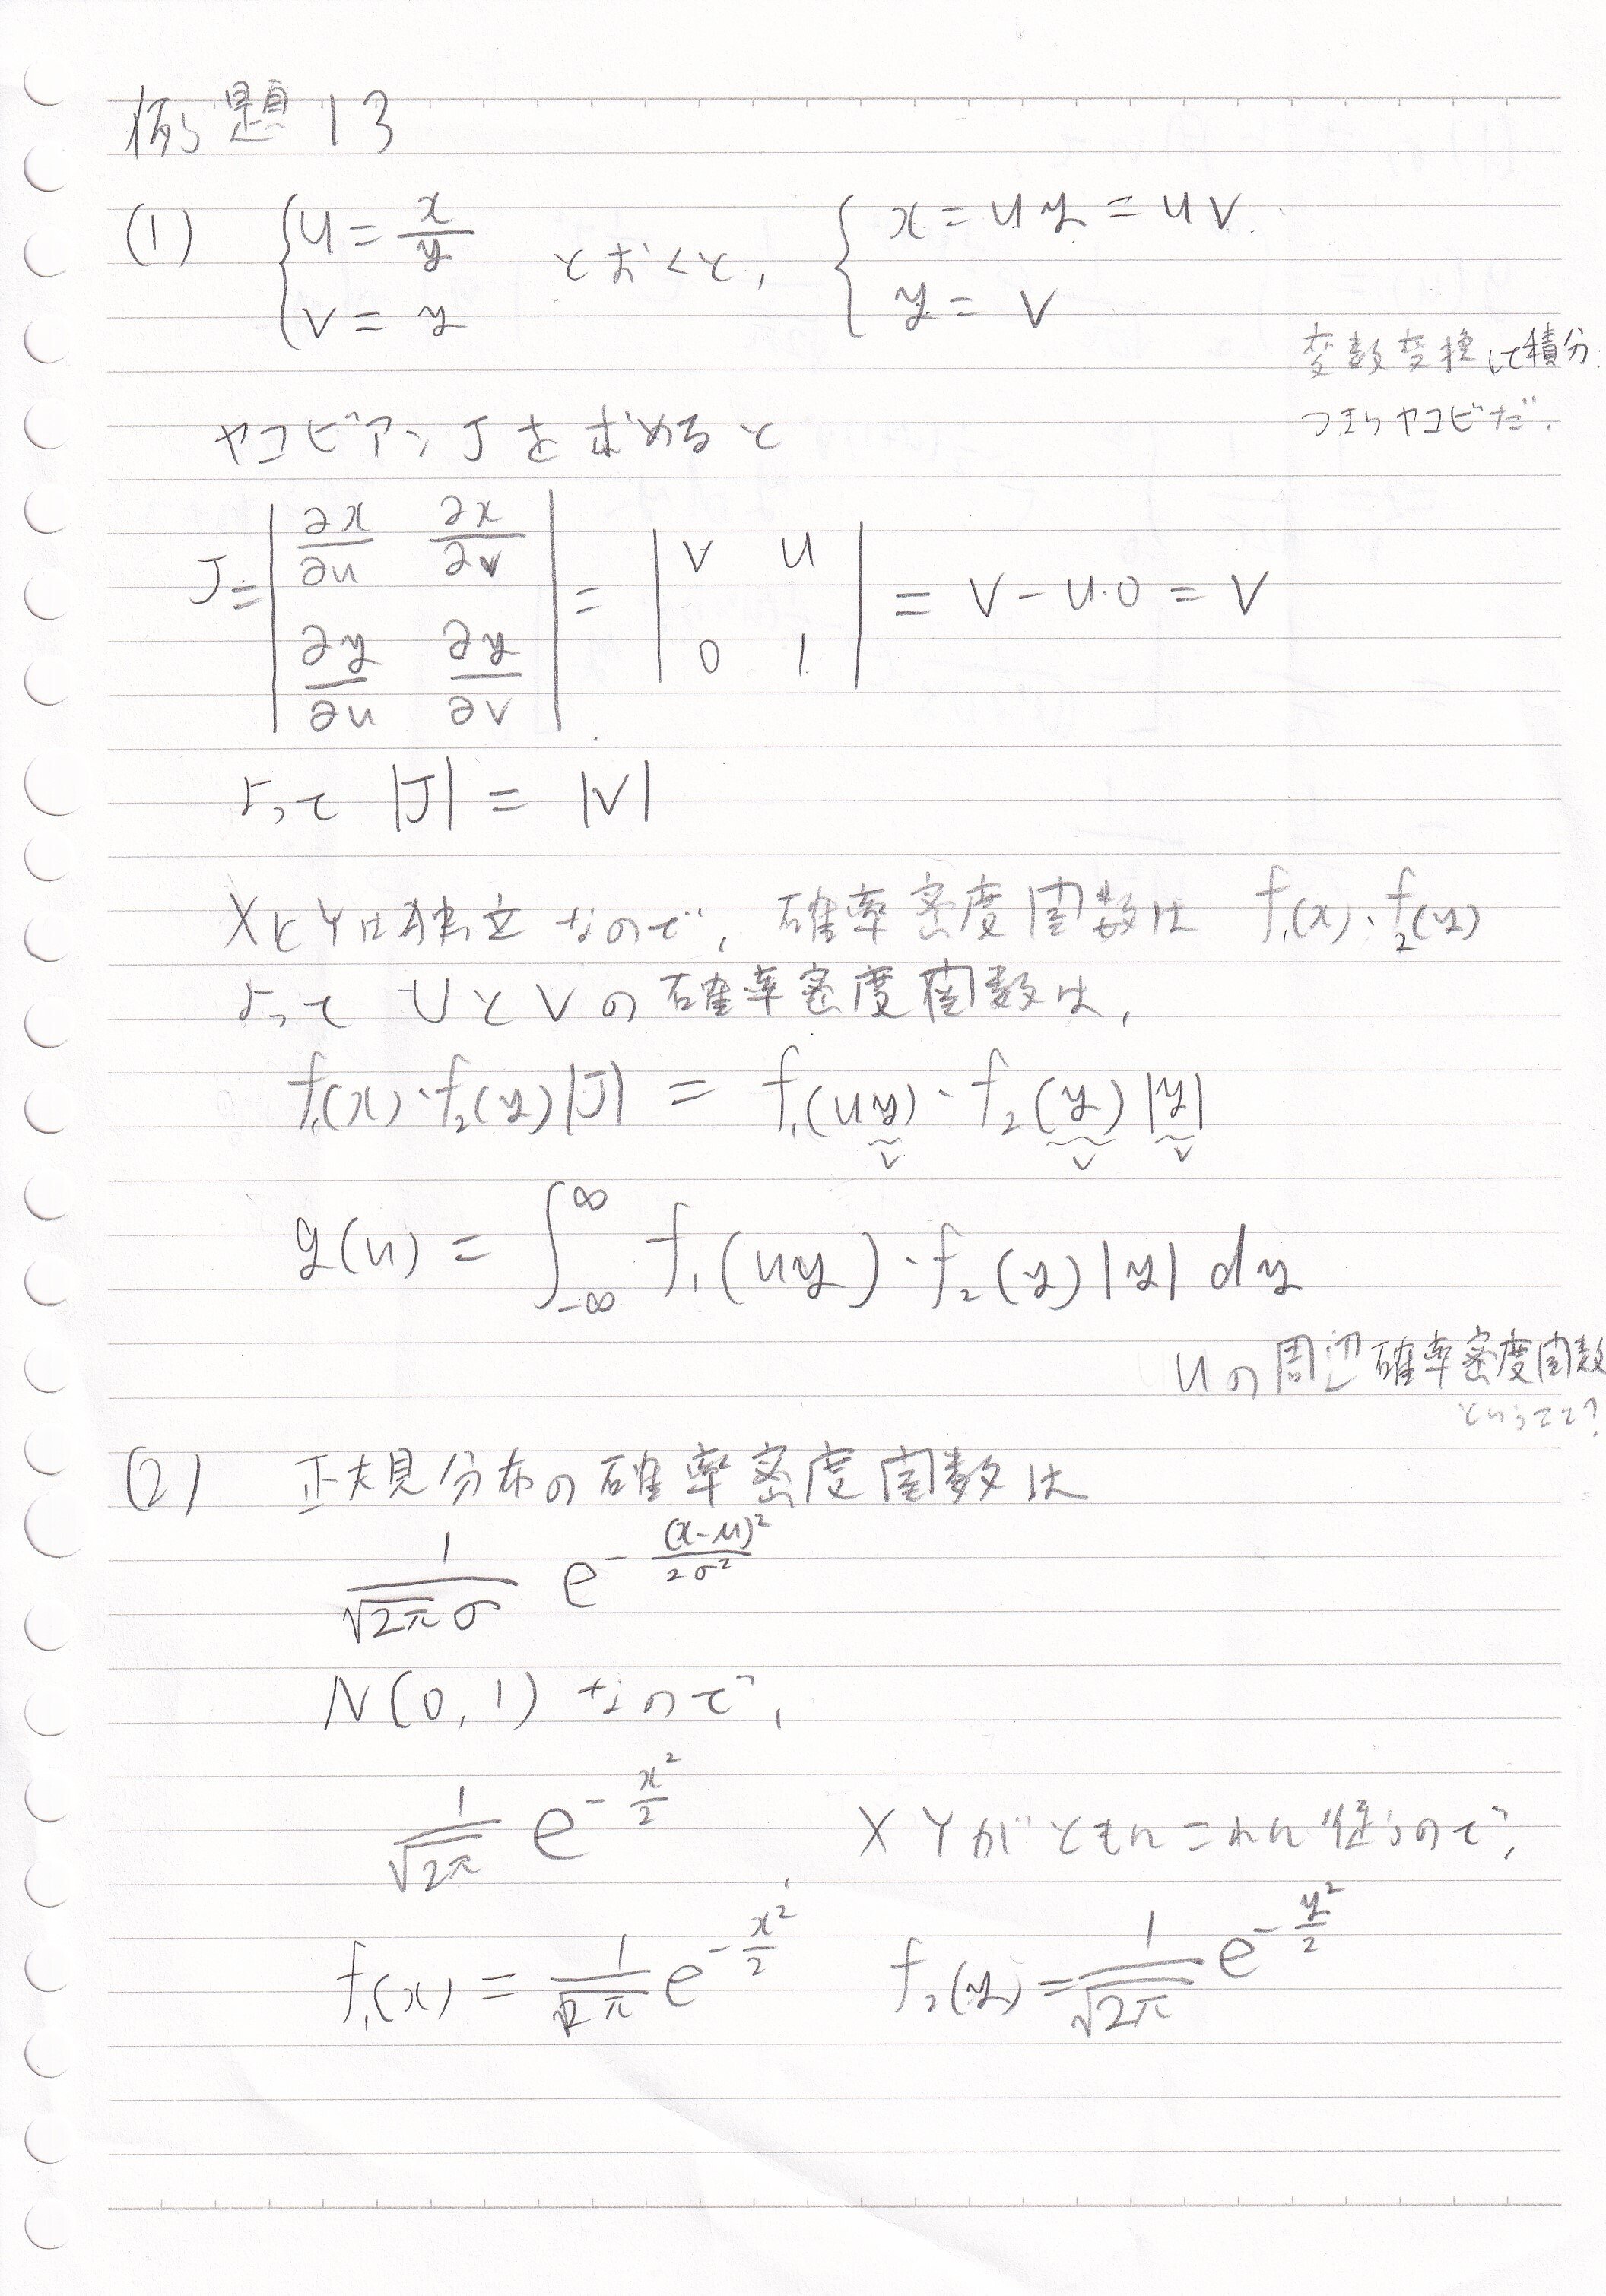 例題 13
(1) { u = x/y とおくと, { x = uy = uv.
v = y y = v
変数変換して積分.
つまりヤコビだ.
ヤコビアン J を求めると
J = | ∂x/∂u ∂x/∂v | = | v u | = v − u·0 = v
| ∂y/∂u ∂y/∂v | | 0 1 |
よって |J| = |v|
XとYは独立なので, 確率密度関数は f₁(x)·f₂(y)
よって UとVの確率密度関数は,
f₁(x)·f₂(y)|J| = f₁(uy)·f₂(y)|y|
v v v
g(u) = ∫_{-∞}^{∞} f₁(uy)·f₂(y)|y| dy
uの周辺確率密度関数
ということ?
(2) 正規分布の確率密度関数は
1/(√2π σ) e^{-(x-μ)²/2σ²}
N(0, 1) なので,
1/√2π e^{-x²/2} X Yがともにこれに従うので,
f₁(x) = 1/√2π e^{-x²/2} f₂(y) = 1/√2π e^{-y²/2}